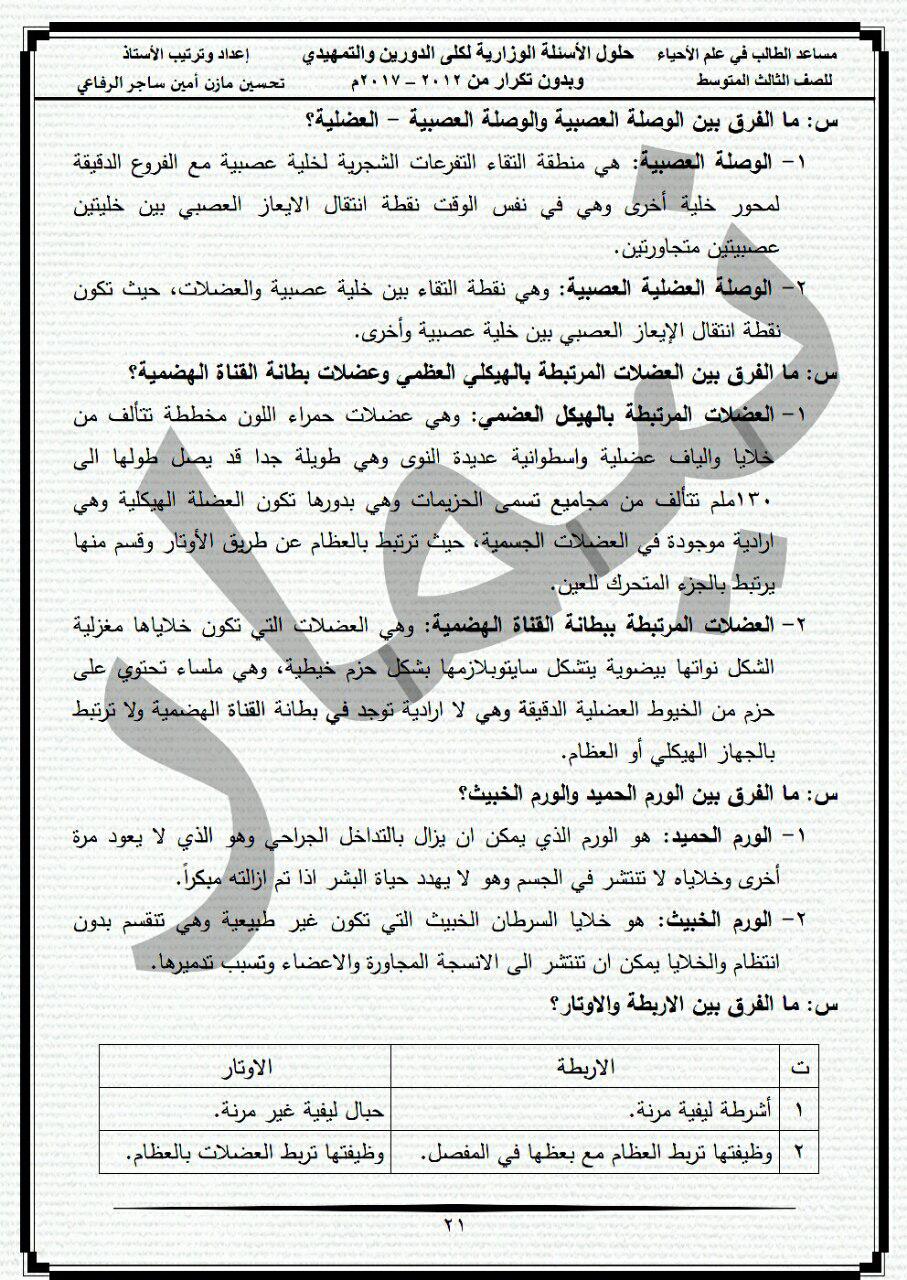 مساعد الطالب في علم الأحياء حلول الأسئلة الوزارية لكلى الدورين والتمهيدي إعداد وترتيب الأستاذ
للصف الثالث المتوسط وبدون تكرار من ٢٠١٢ – ٢٠١٧م تحسين مازن أمين ساجر الرفاعي
س: ما الفرق بين الوصلة العصبية والوصلة العصبية – العضلية؟
١- الوصلة العصبية: هي منطقة التقاء التفرعات الشجرية لخلية عصبية مع الفروع الدقيقة
لمحور خلية أخرى وهي في نفس الوقت نقطة انتقال الايعاز العصبي بين خليتين
عصبيتين متجاورتين.
٢- الوصلة العضلية العصبية: وهي نقطة التقاء بين خلية عصبية والعضلات، حيث تكون
نقطة انتقال الإيعاز العصبي بين خلية عصبية وأخرى.
س: ما الفرق بين العضلات المرتبطة بالهيكلي العظمي وعضلات بطانة القناة الهضمية؟
١- العضلات المرتبطة بالهيكل العضمي: وهي عضلات حمراء اللون مخططة تتألف من
خلايا والياف عضلية واسطوانية عديدة النوى وهي طويلة جدا قد يصل طولها الى
١٣٠ملم تتألف من مجاميع تسمى الحزيمات وهي بدورها تكون العضلة الهيكلية وهي
ارادية موجودة في العضلات الجسمية، حيث ترتبط بالعظام عن طريق الأوتار وقسم منها
يرتبط بالجزء المتحرك للعين.
٢- العضلات المرتبطة ببطانة القناة الهضمية: وهي العضلات التي تكون خلاياها مغزلية
الشكل نواتها بيضوية يتشكل سايتوبلازمها بشكل حزم خيطية، وهي ملساء تحتوي على
حزم من الخيوط العضلية الدقيقة وهي لا ارادية توجد في بطانة القناة الهضمية ولا ترتبط
بالجهاز الهيكلي أو العظام.
س: ما الفرق بين الورم الحميد والورم الخبيث؟
١- الورم الحميد: هو الورم الذي يمكن ان يزال بالتداخل الجراحي وهو الذي لا يعود مرة
أخرى وخلاياه لا تنتشر في الجسم وهو لا يهدد حياة البشر اذا تم ازالته مبكراً.
٢- الورم الخبيث: هو خلايا السرطان الخبيث التي تكون غير طبيعية وهي تنقسم بدون
انتظام والخلايا يمكن ان تنتشر الى الانسجة المجاورة والاعضاء وتسبب تدميرها.
س: ما الفرق بين الاربطة والاوتار؟
ت الاربطة الاوتار
١ أشرطة ليفية مرنة. حبال ليفية غير مرنة.
٢ وظيفتها تربط العظام مع بعظها في المفصل. وظيفتها تربط العضلات بالعظام.
٢١